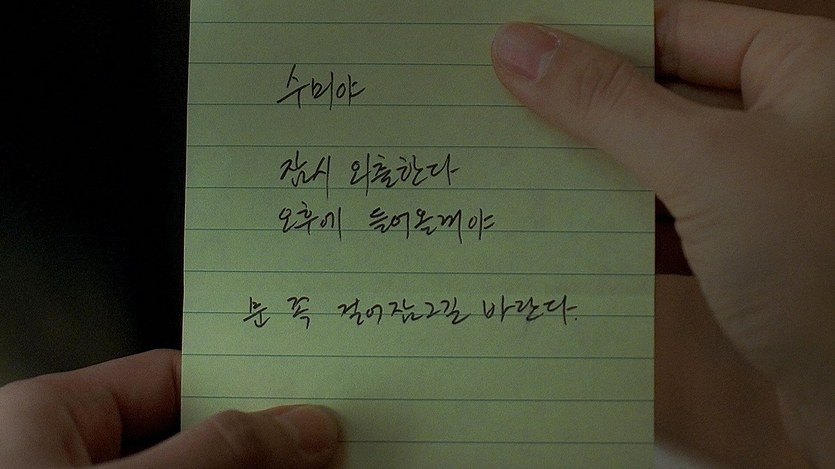 수미야
잠시 외출한다
오후에 들어올께야
문 꼭 걸어잠그길 바란다.